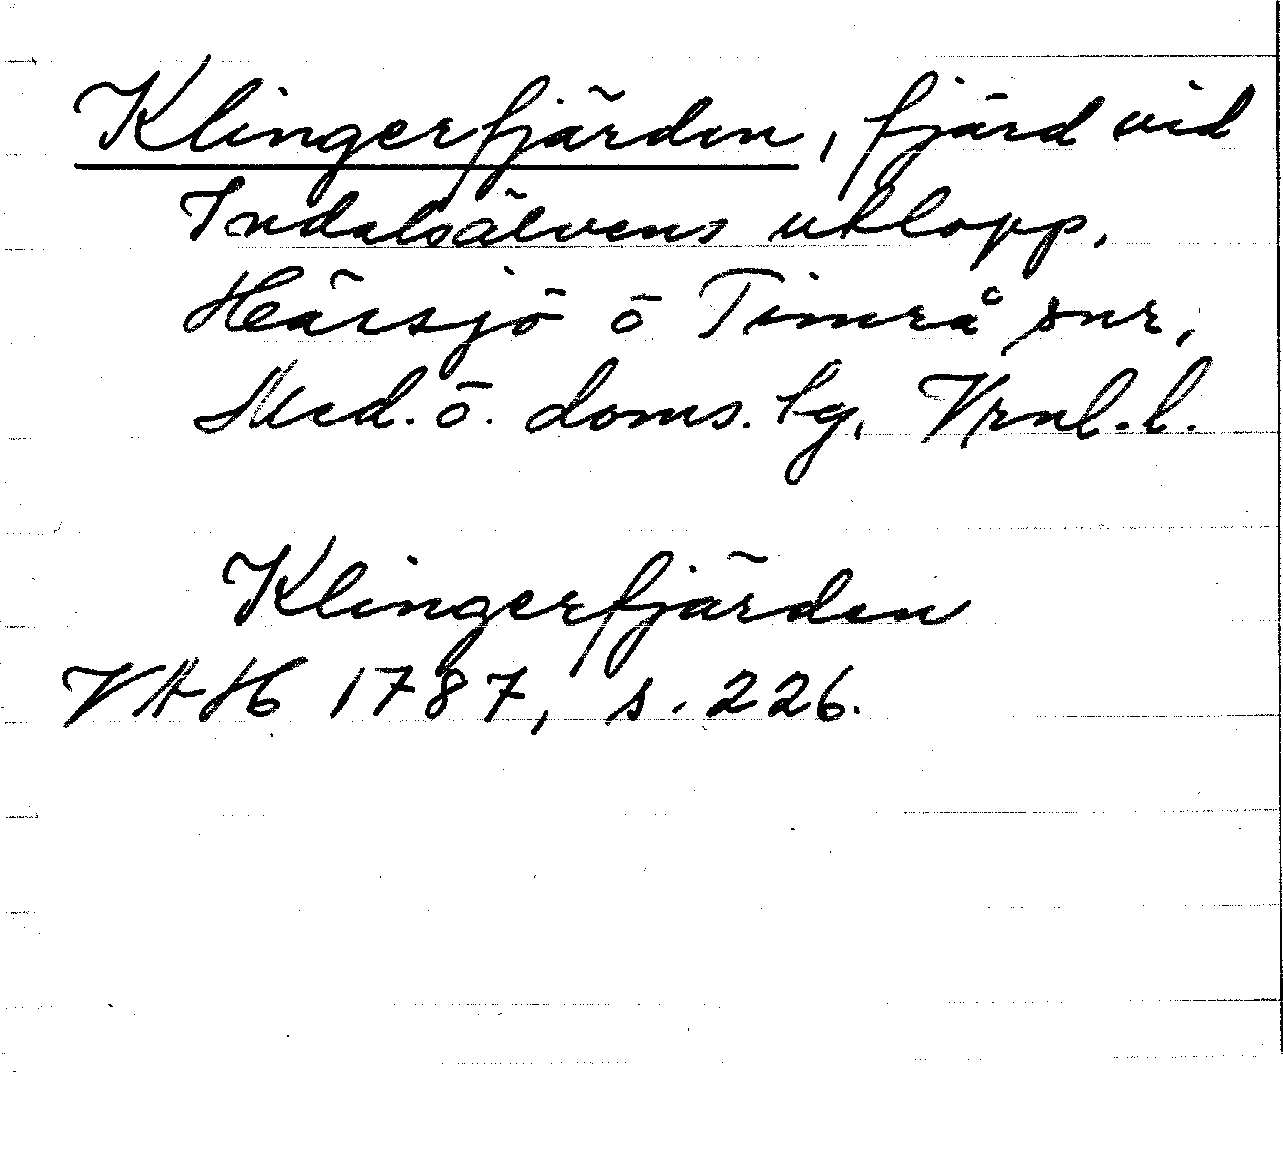 Klingerfjärden, fjärd vid
Indalsälvens utlopp,
Hässjö o Timrå snr,
Med. ö. doms. sg, Vrnl. l.
Klingerfjärden
VAH 1787, s. 226.